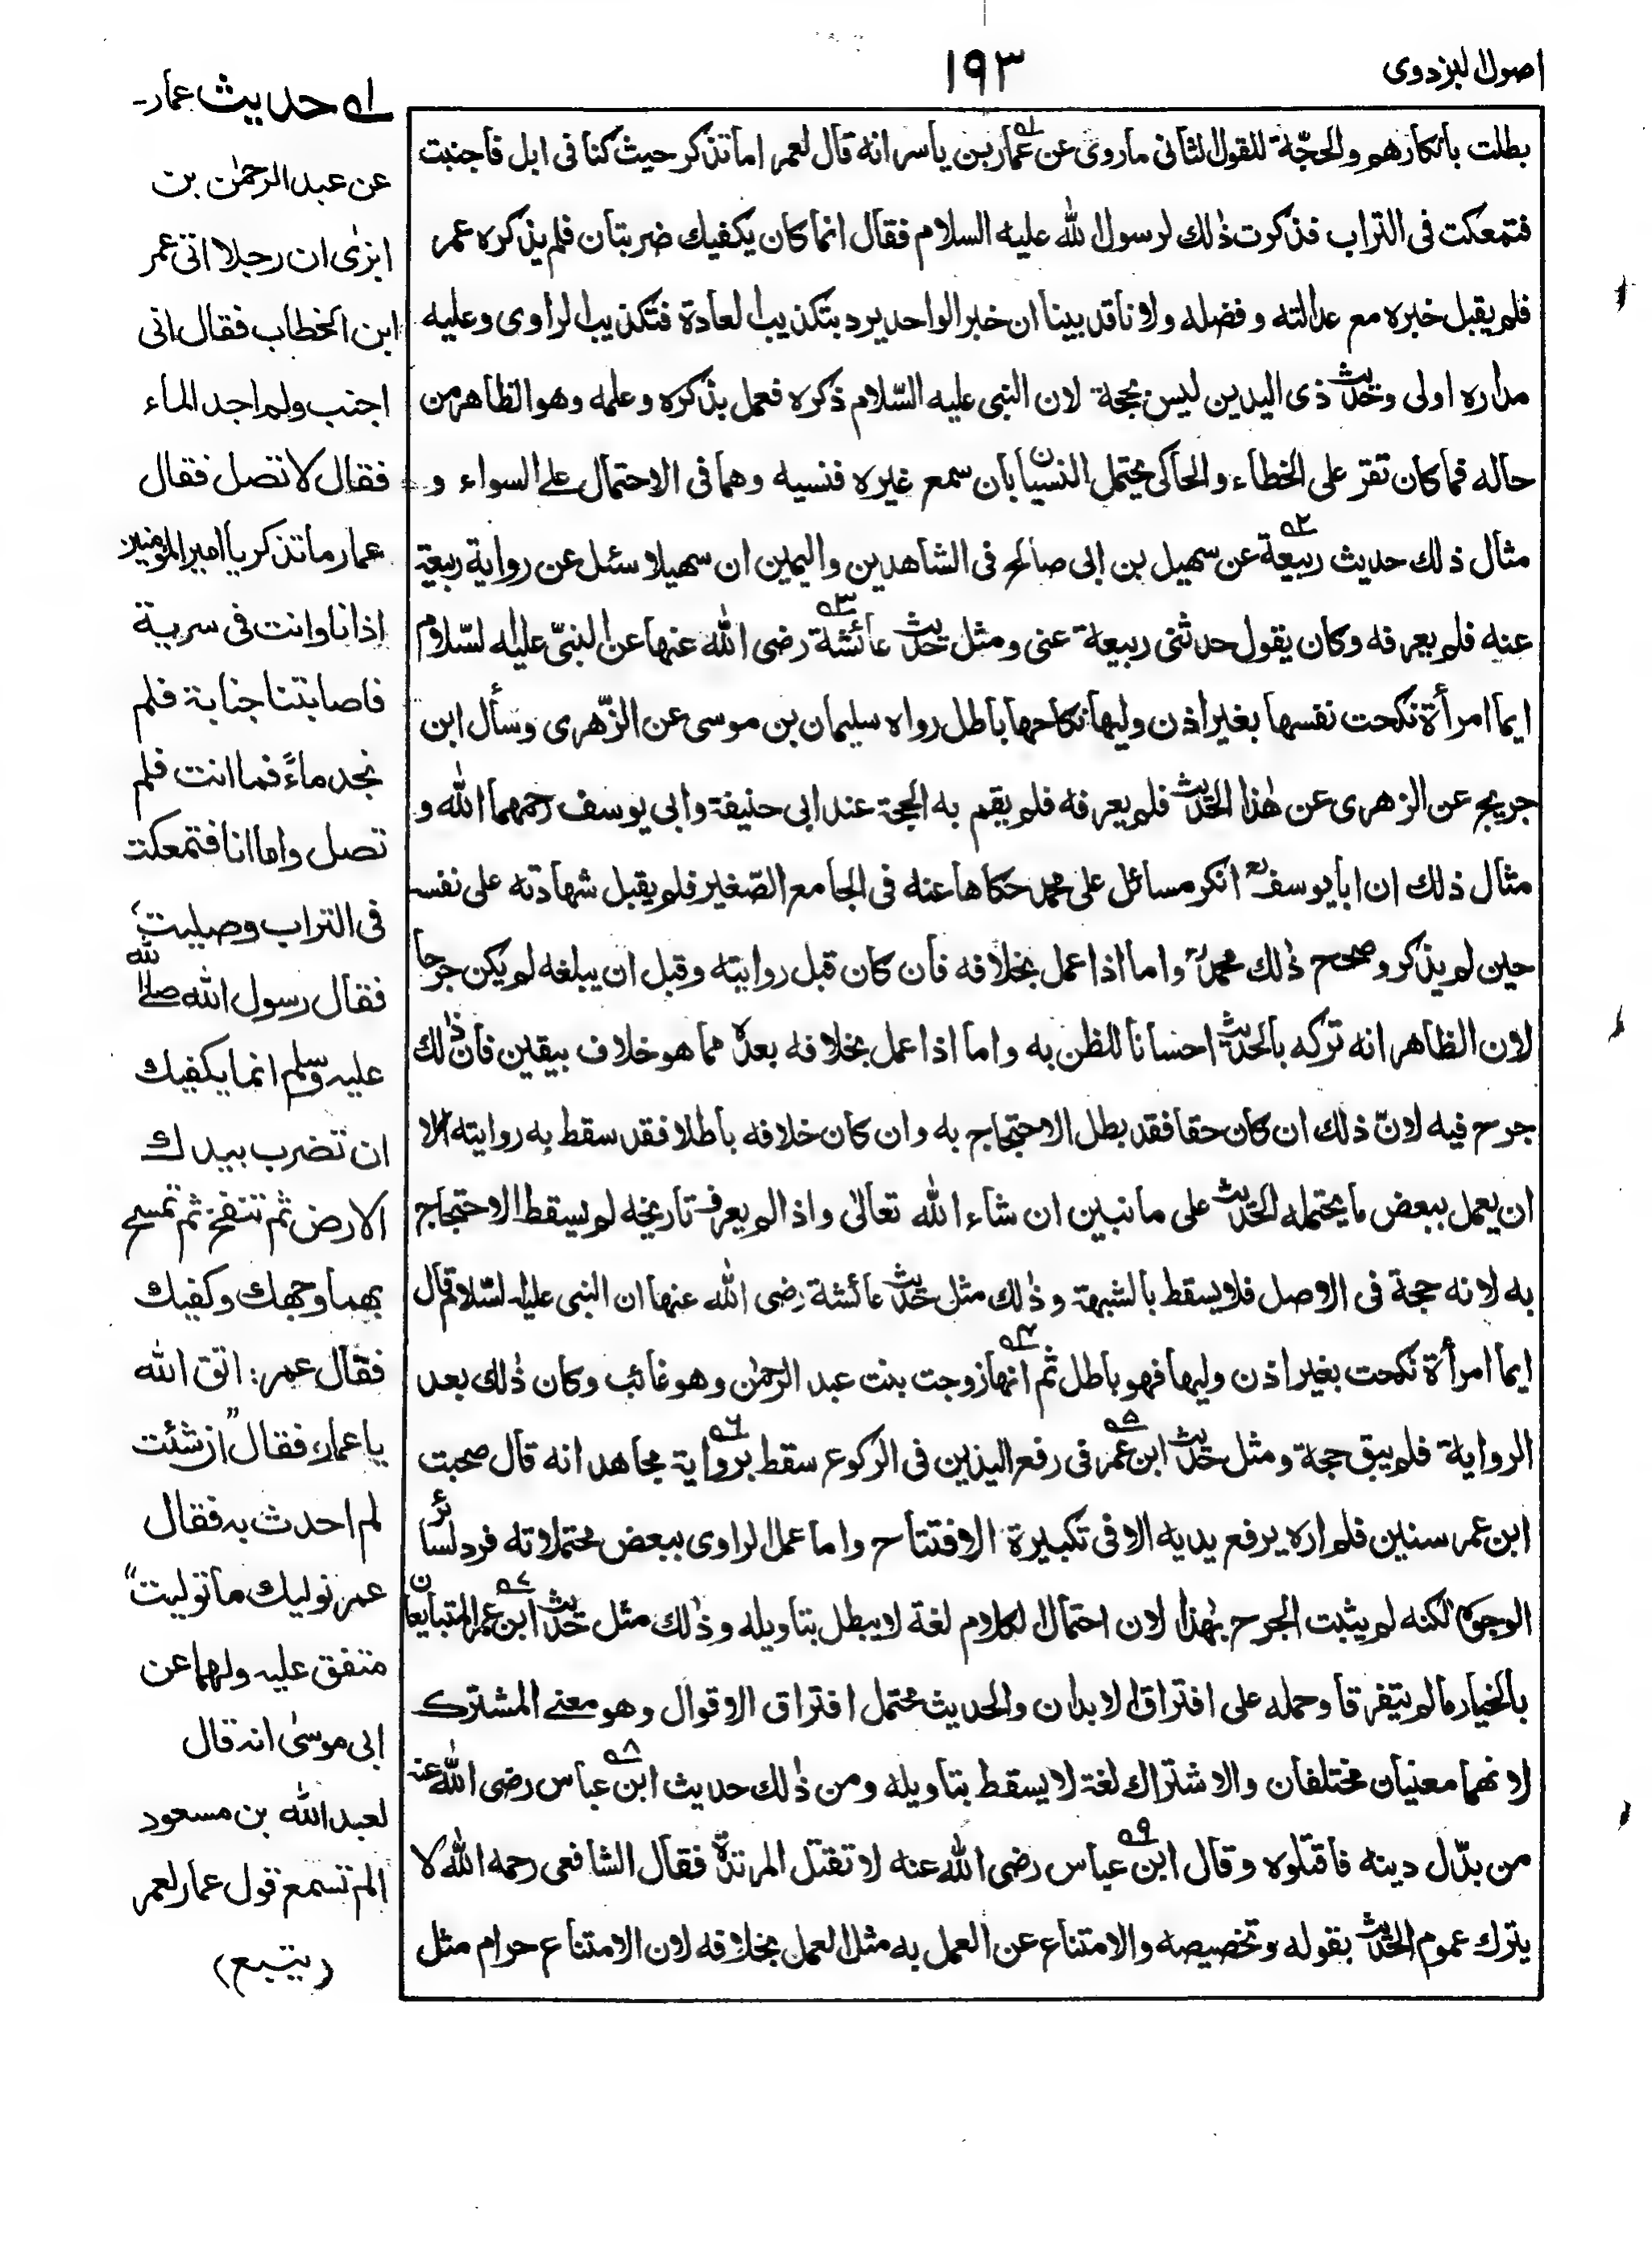 اصول البزدوی
۱۹۳
بطلت بانكارهم والحجّة للقول الثانی ماروی عن عمار بن ياسر انه قال لعمر اما تذكر حيث كنا فی ابل فاجنبت
فتمعكت فی التراب فذكرت ذٰلك لرسول الله عليه السلام فقال انما كان يكفيك ضربتان فلم يذكره عمر
فلم يقبل خبره مع عدالته وفضله ولاناقد بينا ان خبر الواحد يرد بتكذيب العادة فتكذيب الراوی وعليه
مداره اولی وحديث ذی اليدين ليس بحجة لان النبی عليه السّلام ذكره فعمل بذكره وعلمه وهو الظاهر من
حاله فما كان تقر علی الخطاء والحاكی يحتمل النسيان بان سمع غيره فنسيه وهما فی الاحتمال علے السواء و
مثال ذلك حديث ربيعة ۲ عن سهيل بن ابی صالح فی الشاهدين واليمين ان سهيلا سئل عن رواية ربيعة
عنه فلم يعرفه وكان يقول حدثنی ربيعة عنی ومثل حديث عائشة ۳ رضی الله عنها عن النبیّ عليه السّلام
ايما امرأة نكحت نفسها بغير اذن وليها نكاحها باطل رواه سليمان بن موسی عن الزّهری وسأل ابن
جريج عن الزهری عن هٰذا الحديث فلم يعرفه فلم يقم به الحجة عند ابی حنيفة وابی يوسف رحمهما الله و
مثال ذلك ان ابا يوسفؒ انكر مسائل علی محمد حكاها عنه فی الجامع الصّغير فلم يقبل شهادته علی نفسه
حين لم يذكر وصحح ذٰلك محمدؒ واما اذا عمل بخلافه فان كان قبل روايته وقبل ان يبلغه لم يكن جرحا
لان الظاهر انه تركه بالحديث احسانا للظن به واما اذا عمل بخلافه بعده مما هو خلاف بيقين فان ذٰلك
جرح فيه لانّ ذلك ان كان حقا فقد بطل الاحتجاج به وان كان خلافه باطلا فقد سقط به روايته الا
ان يعمل ببعض ما يحتمله الحديث علی ما نبين ان شاء الله تعالیٰ واذا لم يعرف تاريخه لم يسقط الاحتجاج
به لانه حجة فی الاصل فلا يسقط بالشبهة وذٰلك مثل حديث عائشة رضی الله عنها ان النبی عليه السّلام قال
ايما امرأة نكحت بغير اذن وليها فهو باطل ثم ۴ انها زوجت بنت عبد الرحمٰن وهو غائب وكان ذٰلك بعد
الرواية فلم يبق حجة ومثل حديث ابن عمر ۵ فی رفع اليدين فی الركوع سقط برواية ۶ مجاهد انه قال صحبت
ابن عمر سنين فلم اره يرفع يديه الا فی تكبيرة الافتتاح واما عمل الراوی ببعض محتملاته فرد لسائر
الوجوه لكنه لم يثبت الجرح بهٰذا لان احتمال الكلام لغة لا يبطل بتاويله وذٰلك مثل حديث ابن عمر ۷ المتبايعان
بالخيار مالم يتفرقا وحمله علی افتراق الابدان والحديث محتمل افتراق الاقوال وهو معنے المشترك
لانهما معنيان مختلفان والاشتراك لغة لا يسقط بتاويله ومن ذٰلك حديث ابن عباس ۸ رضی الله عنه
من بدّل دينه فاقتلوه وقال ابن عباس ۹ رضی الله عنه لا تقتل المرتدة فقال الشافعی رحمه الله لا
يترك عموم الحديث بقوله وتخصيصه والامتناع عن العمل به مثل العمل بخلافه لان الامتناع حرام مثل
لے حديث عمار۔
عن عبد الرحمٰن بن
ابزیٰ ان رجلا اتی عمر
ابن الخطاب فقال انی
اجنب ولم اجد الماء
فقال لا تصل فقال
عمار ما تذكر يا امير المؤمنين
اذ انا وانت فی سرية
فاصابتنا جنابة فلم
نجد ماءً فما انت فلم
تصل واما انا فتمعكت
فی التراب وصليت،
فقال رسول الله صلے الله
عليہ وسلم انما يكفيك
ان تضرب بيدك
الارض ثم تنفخ ثم تمسح
بهما وجهك وكفيك
فقال عمر: اتق الله
يا عمار، فقال" ان شئت
لم احدث بہ فقال
عمر نوليك ما توليت"
متفق عليہ ولهما عن
ابی موسیٰ انہ قال
لعبد الله بن مسعود
الم تسمع قول عمار لعمر
(يتبع)